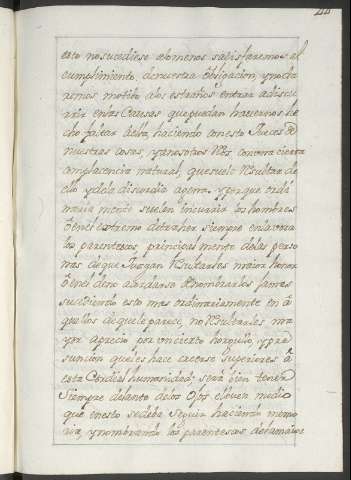 esto no sucediese alomenos satisfaremos al
cumplimiento, denuestra Obligacion, y no da
remos motibo alos estraños entrar adiscu
rrir en las Causas que puedan havernos he
cho faltar aella, haciendo con esto Jueces de
nuestras cosas, y a nosotros con cierta
complacencia natural, que suele resultar de
ello y dela discordia agena. y porque ordi
naria mente suelen incurrir los hombres
en el extremo de traher siempre en la voca
los parentescos, principal mente delas perso
nas de que Juzgan Resultarles maior honor
o en el de no acordarse Nombrarlos jamas
sucediendo esto mas ordinariamente en a
quellos de que le parece, no Resultarles ma
yor aprecio por un cierto horgullo, y pre
suncion que les hace creerse Superiores a
esta Cordial humanidad; será bien tener
Siempre delante delos Ojos el buen medio
que en esto se debe Seguir haciendo memo
ria, y nombrando los parentescos de